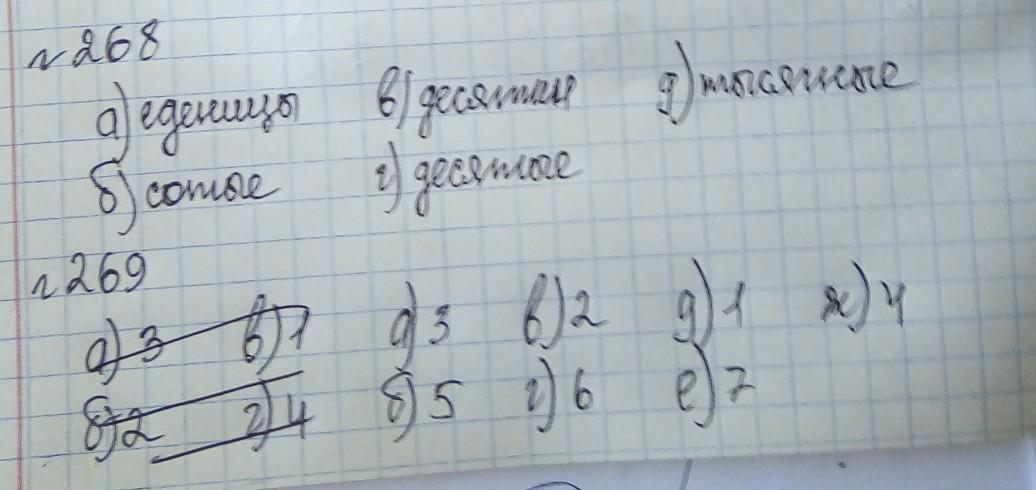 №268
а) еденицы в) десятки д) тысячные
б) сотые г) десятые
№269
а) 3 в) 1 а) 3 в) 2 д) 1 ж) 4
б) 2 г) 4 б) 5 г) 6 е) 7